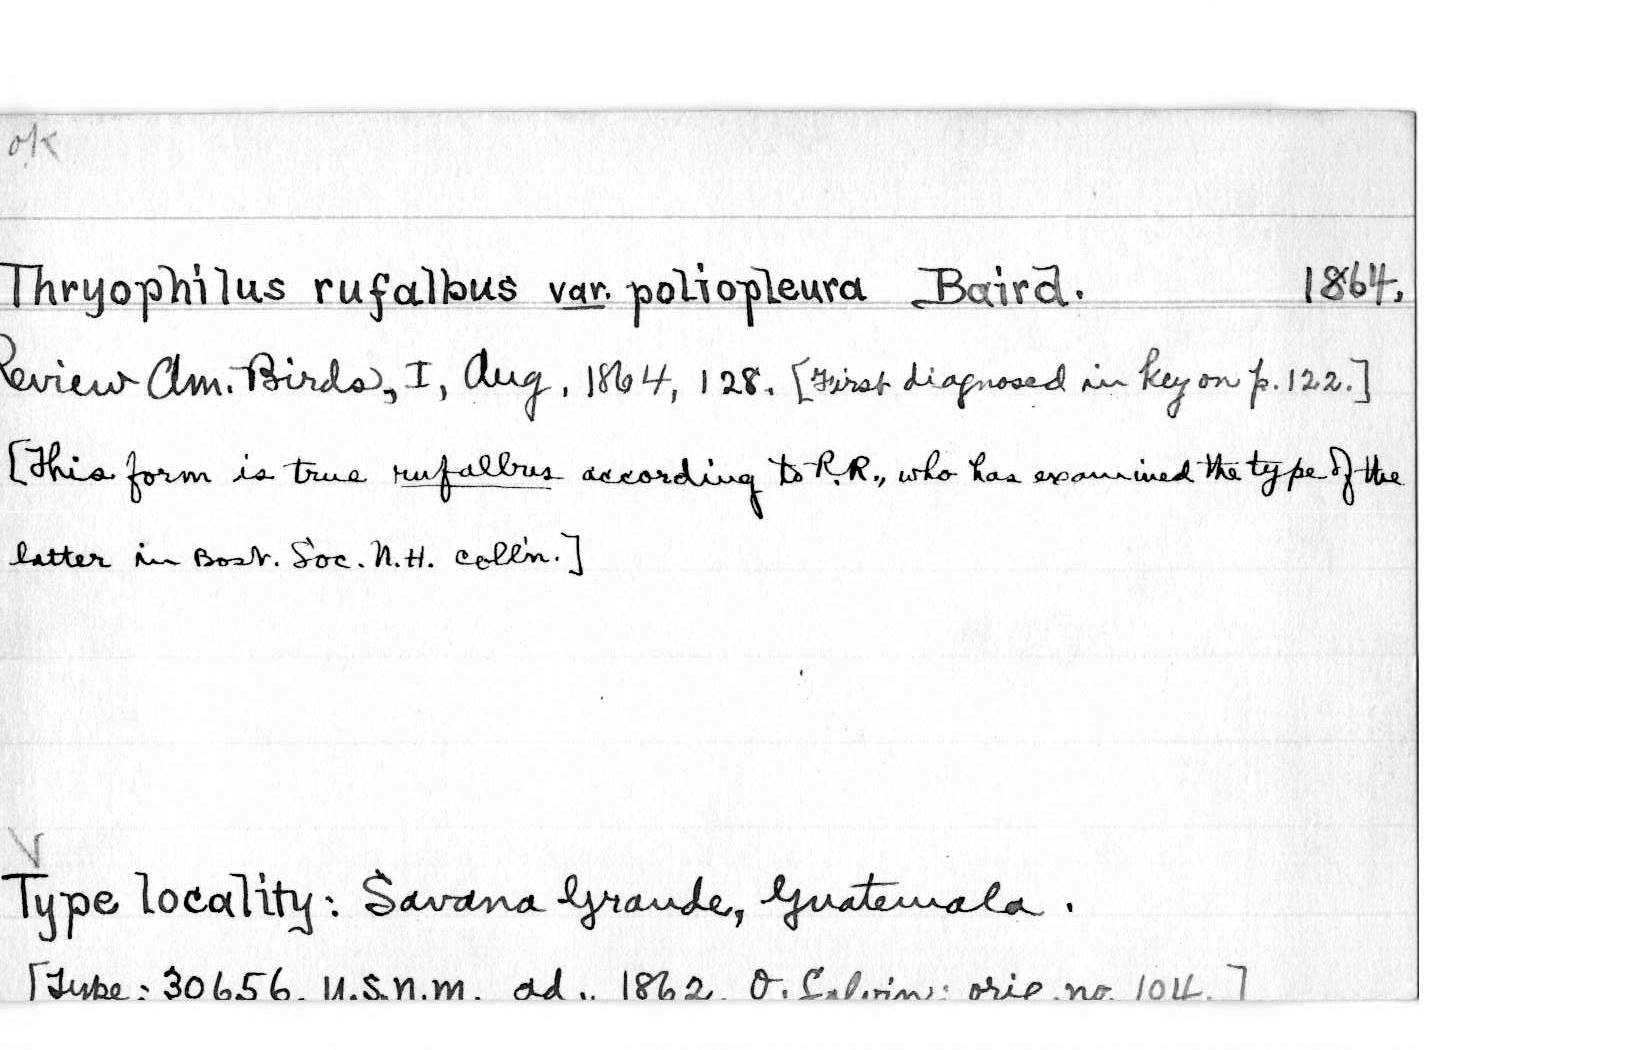 ok
Thryophilus rufalbus var. poliopleura Baird. 1864.
Review Am. Birds, I, Aug, 1864, 128. [First diagnosed in key on p. 122.]
[This form is true rufalbus according to R.R., who has examined the type of the
latter in Bost. Soc. N.H. coll'n.]
V
Type locality: Savana Grande, Guatemala.
[Type: 30656. U.S.N.M. ad., 1862. O. Salvin; orig. no. 104.]